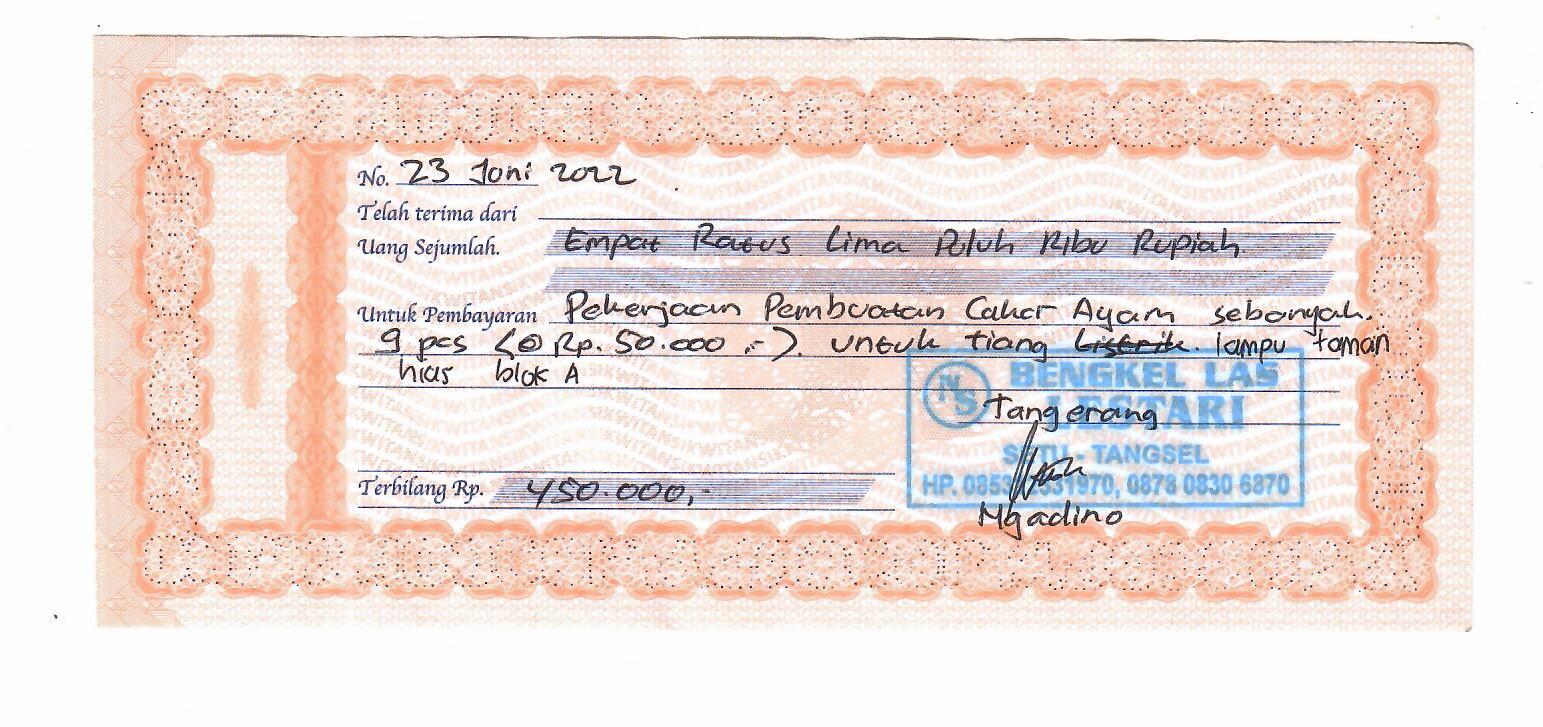 No. 23 Juni 2022
Telah terima dari
Uang Sejumlah. Empat Ratus Lima Puluh Ribu Rupiah
Untuk Pembayaran Pekerjaan Pembuatan Cakar Ayam sebanyak.
9 pcs (@ Rp. 50.000 ,-). untuk tiang Listrik. lampu taman
hias blok A
BENGKEL LAS
LESTARI
Tangerang
SETU - TANGSEL
HP. 0878 0830 6870
Terbilang Rp. 450.000,-
Ngadino